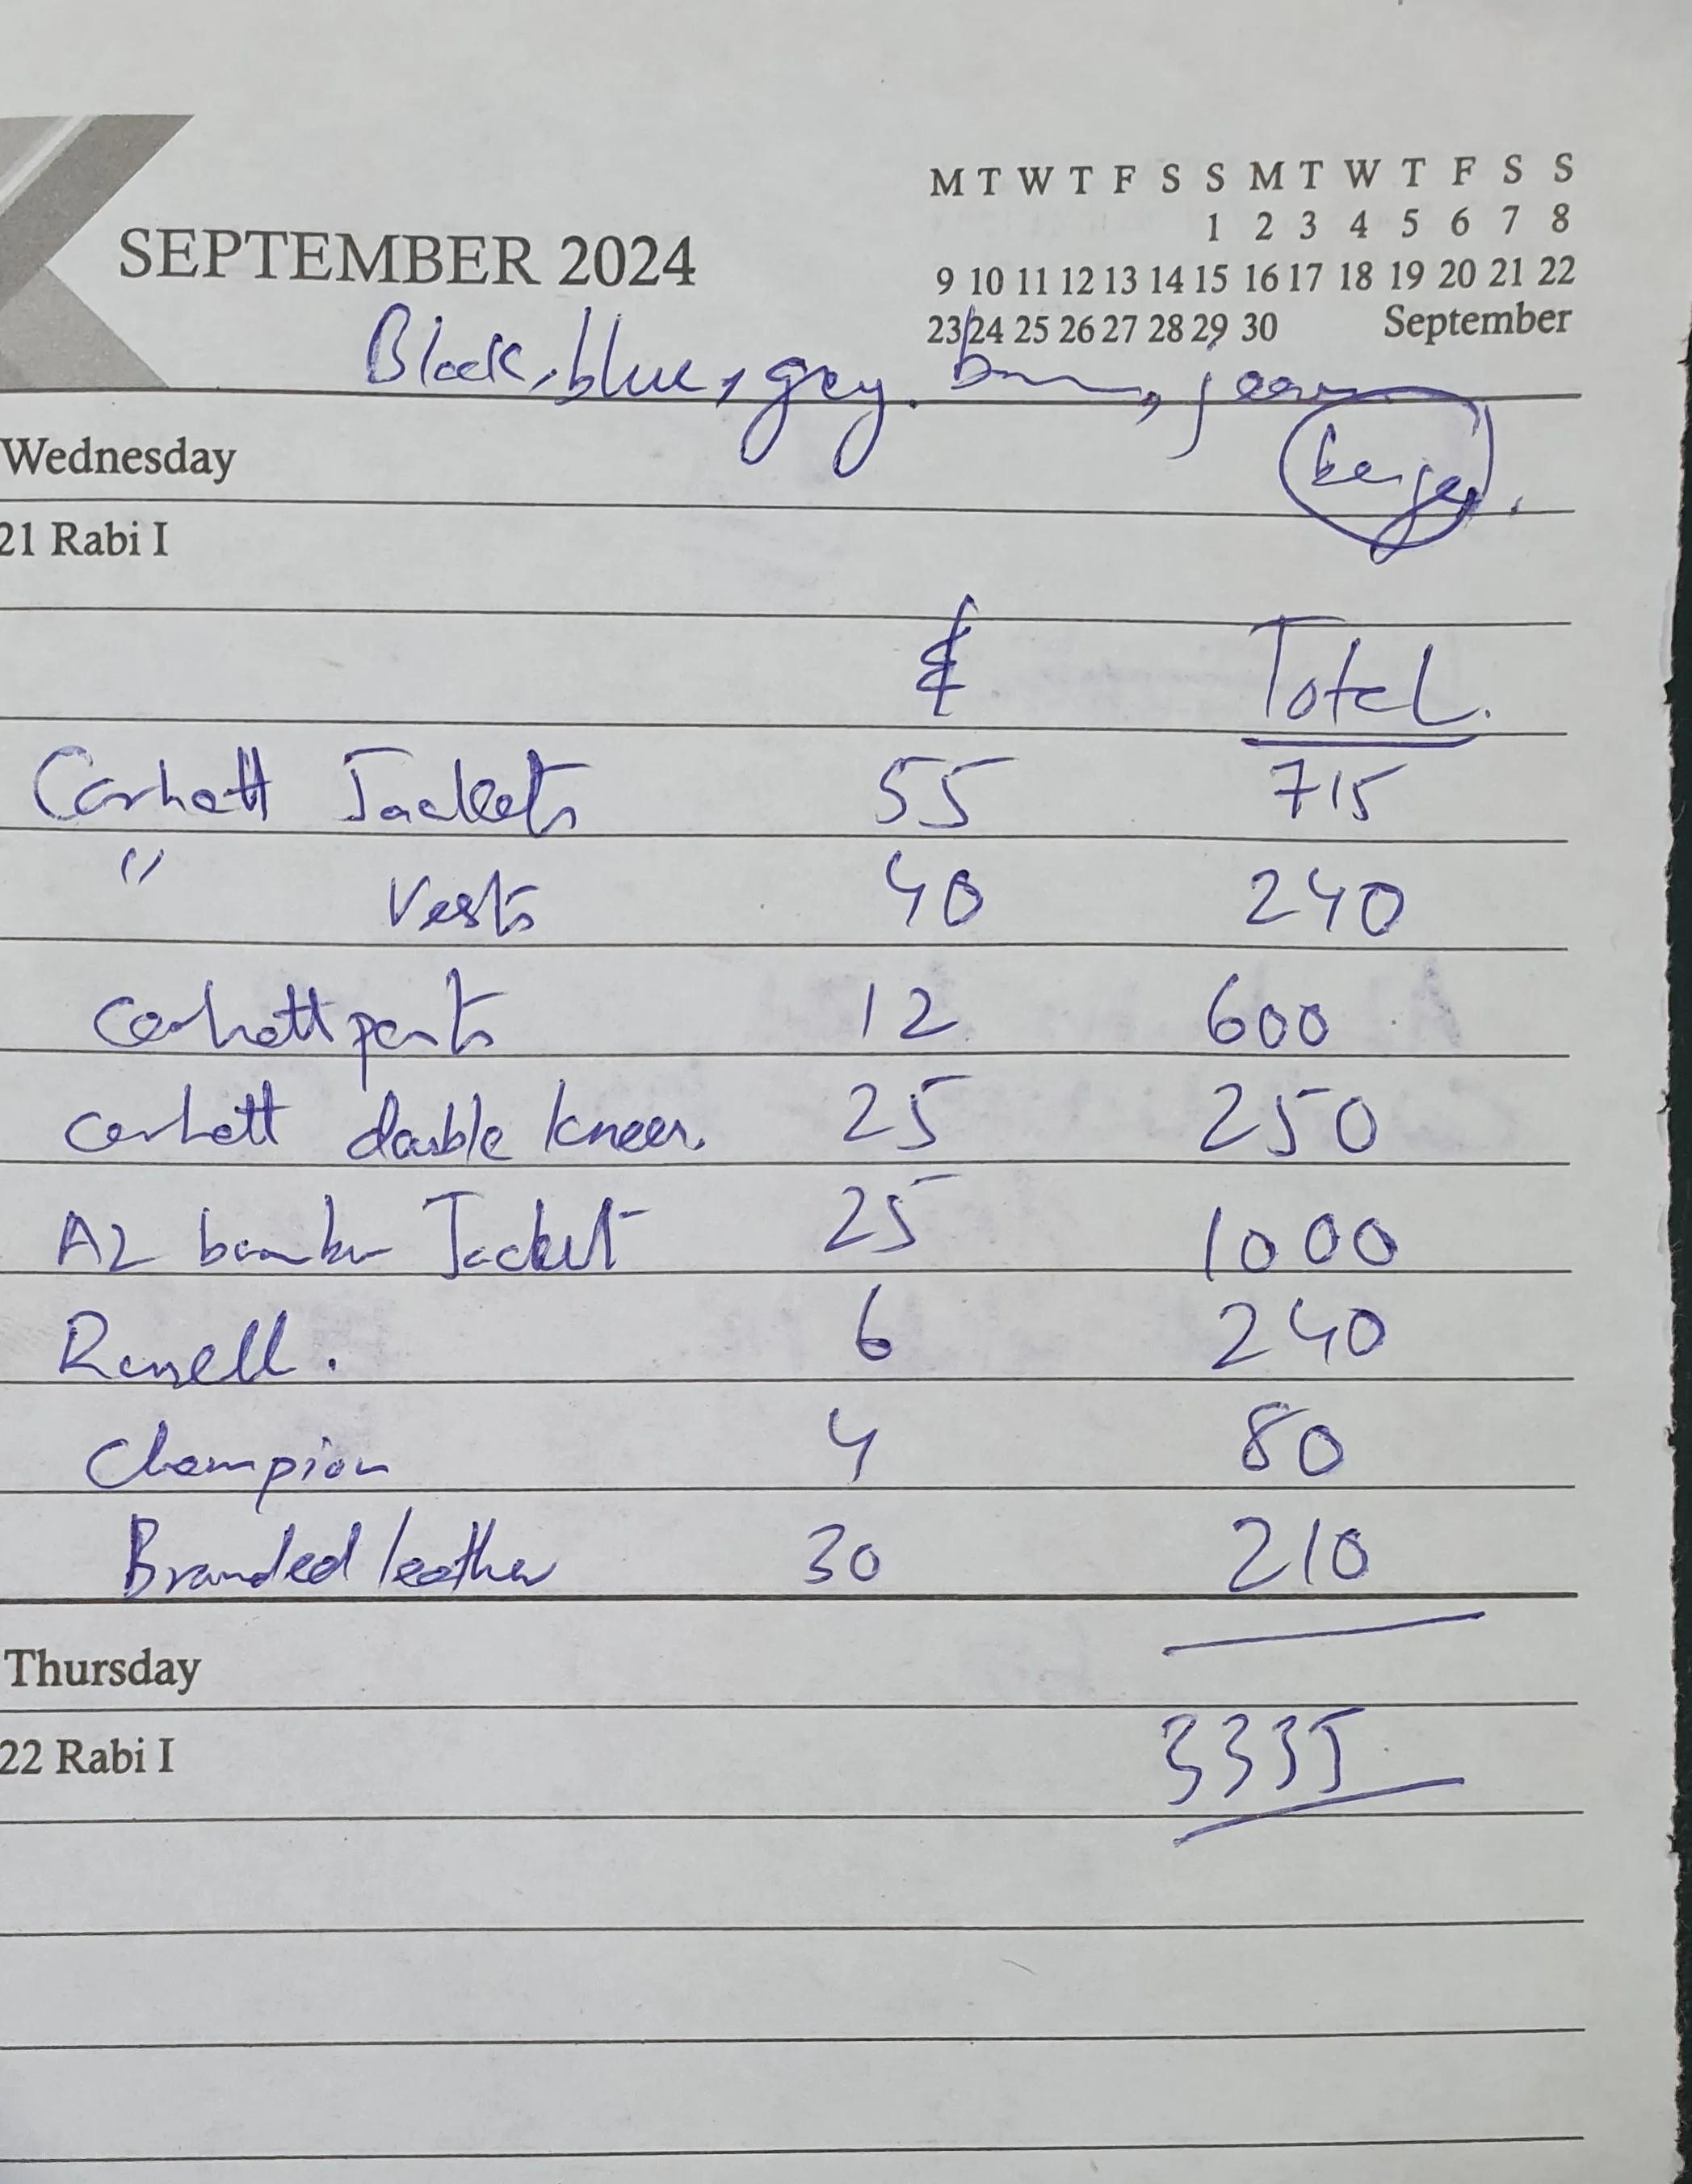 M T W T F S S M T W T F S S
1 2 3 4 5 6 7 8
SEPTEMBER 2024
9 10 11 12 13 14 15 16 17 18 19 20 21 22
23 24 25 26 27 28 29 30 September
Black, blue, grey.
Wednesday
beige,
21 Rabi I
Total.
Carhatt Jackets 55 715
" Vests 40 240
Carhatt pants 12 600
Carhatt double knees. 25 250
A2 Jacket 25 1000
Russell. 6 240
Champion 4 80
Branded leather 30 210
Thursday
22 Rabi I
3335